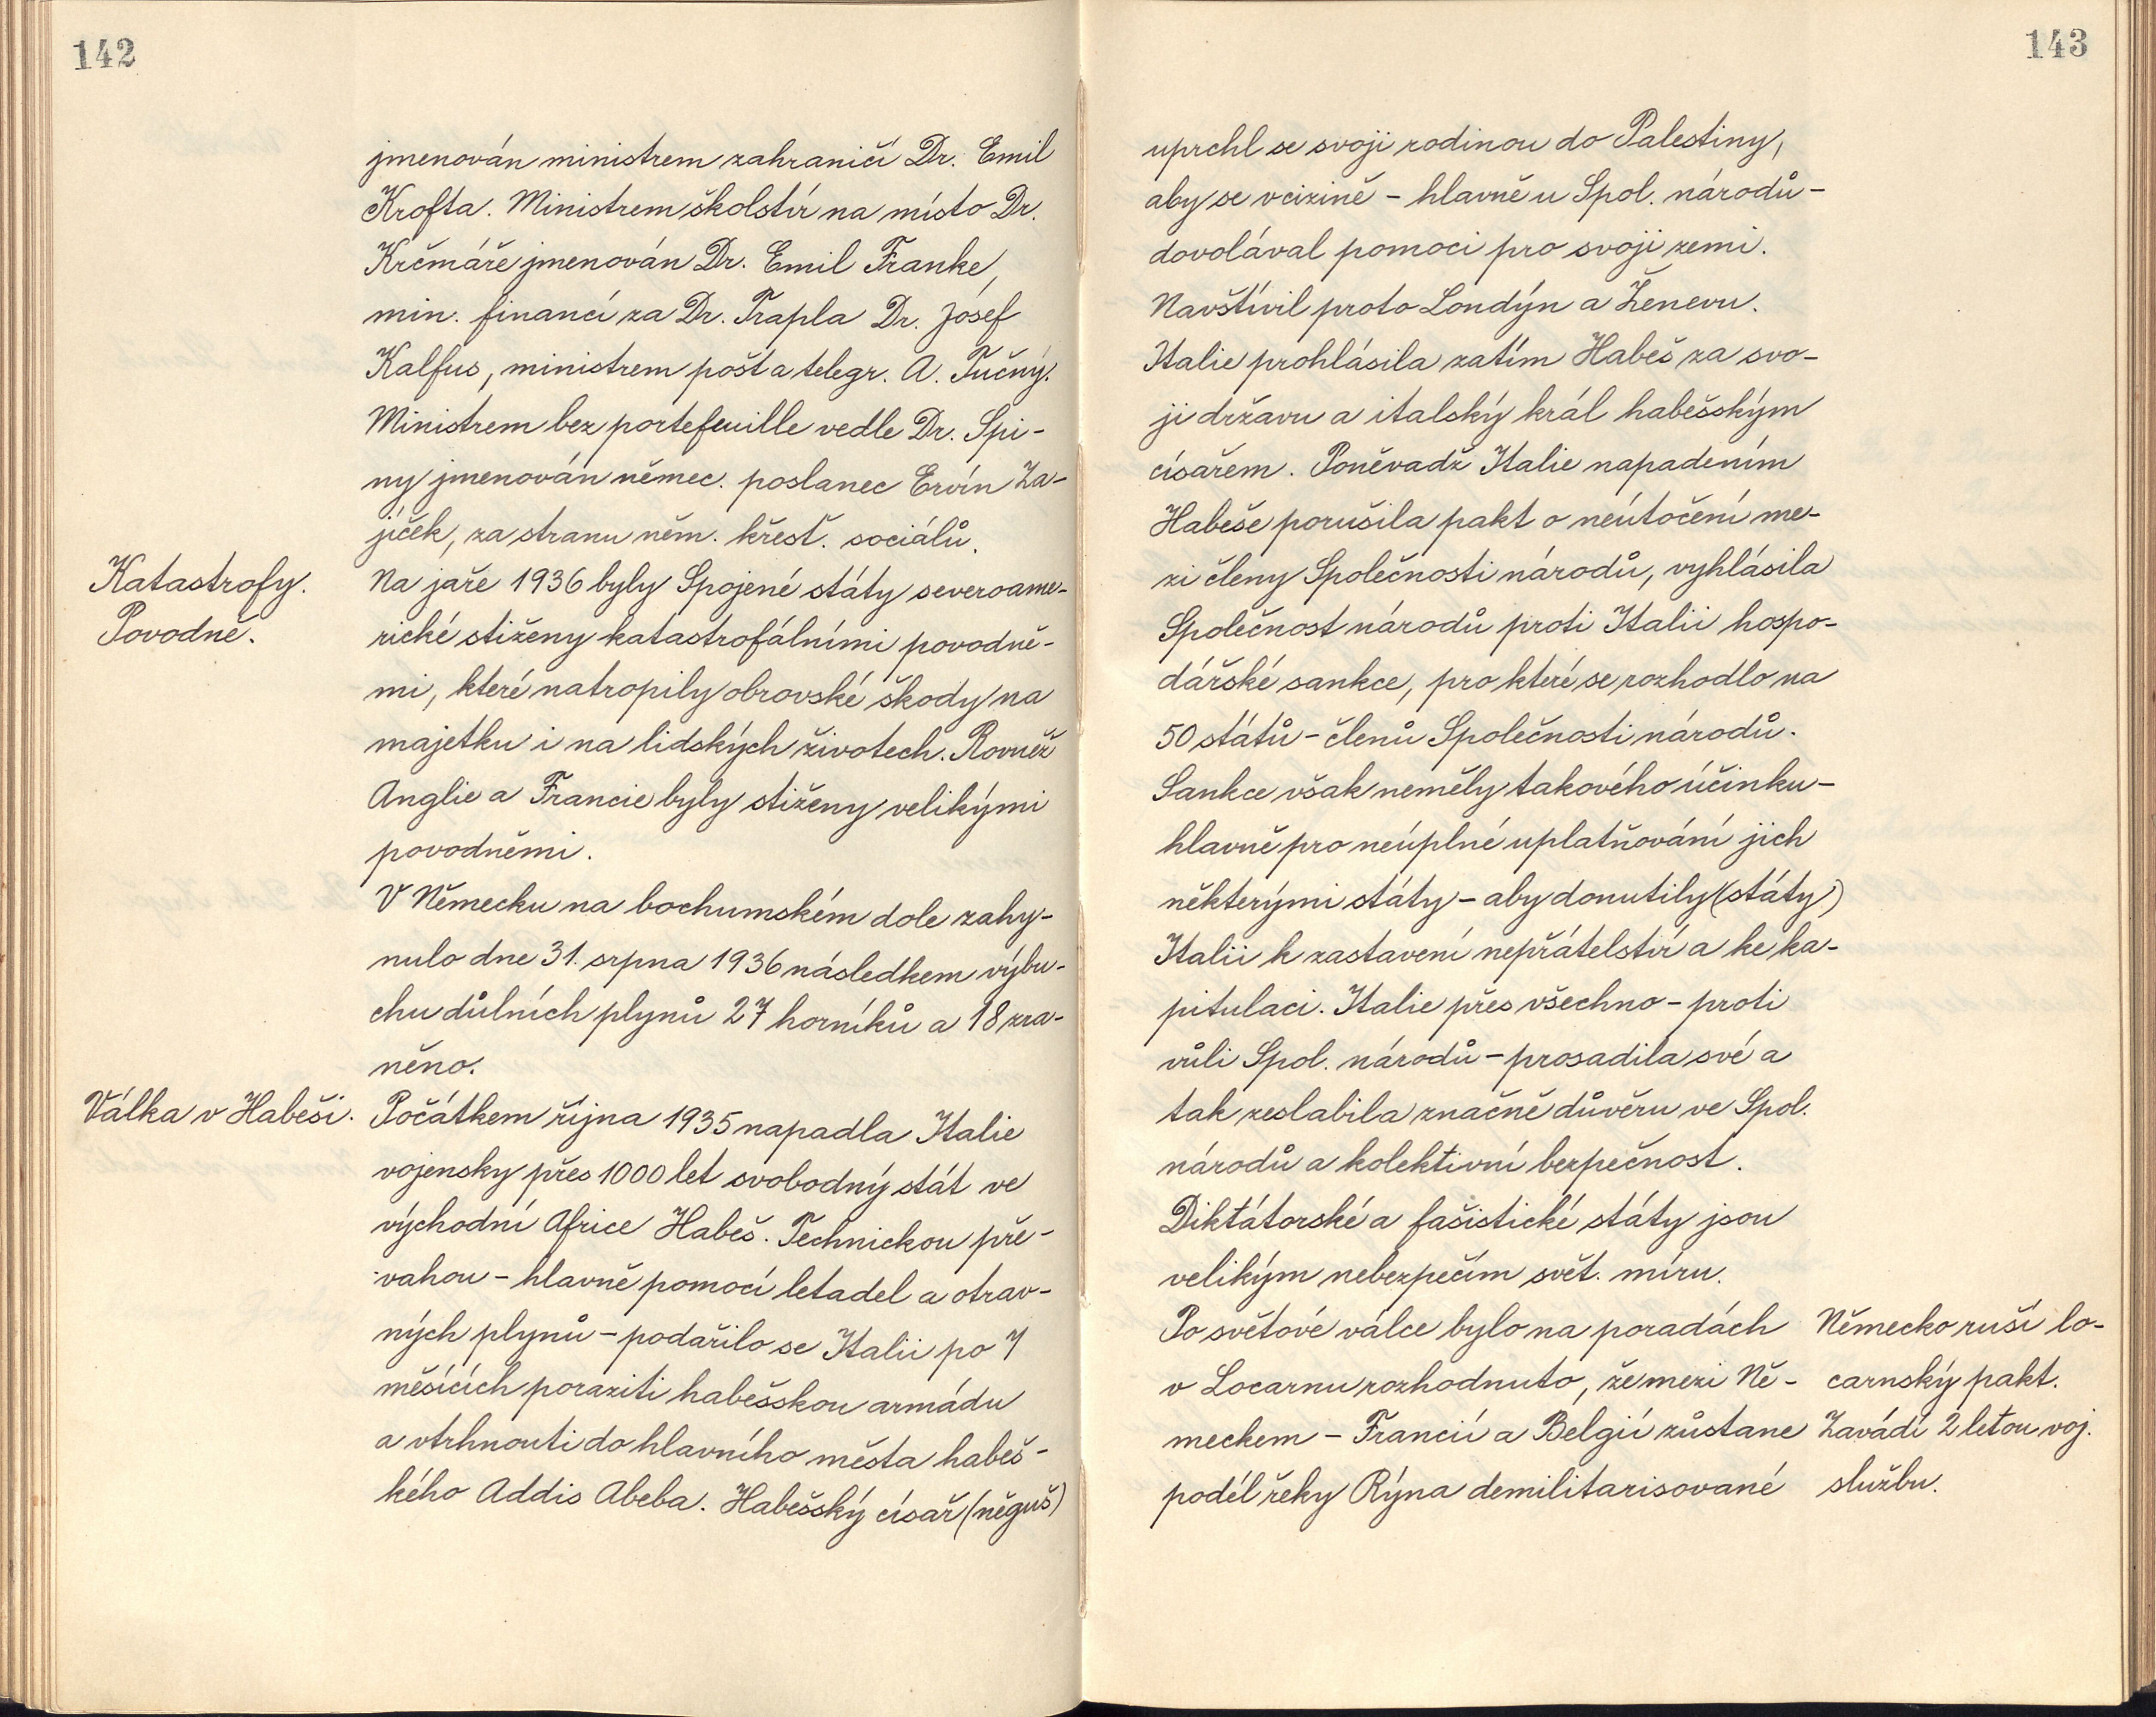 142
jmenován ministrem zahraničí Dr. Emil
Krofta. Ministrem školství na místo Dr.
Krčmáře jmenován Dr. Emil Franke,
min. financí za Dr. Trapla Dr. Josef
Kalfus, ministrem pošt a telegr. A. Tučný.
Ministrem bez portefeuille vedle Dr. Spi-
ny jmenován němec. poslanec Ervín Za-
jíček, za stranu něm. křesť. sociálů.
Katastrofy.
Povodně.
Na jaře 1936 byly Spojené státy severoame-
rické stiženy katastrofálními povodně-
mi, které natropily obrovské škody na
majetku i na lidských životech. Rovněž
Anglie a Francie byly stiženy velikými
povodněmi.
V Německu na bochumském dole zahy-
nulo dne 31. srpna 1936 následkem výbu-
chu důlních plynů 27 horníků a 18 zra-
něno.
Válka v Habeši.
Počátkem října 1935 napadla Italie
vojensky přes 1000 let svobodný stát ve
východní Africe Habeš. Technickou pře-
vahou - hlavně pomocí letadel a otrav-
ných plynů - podařilo se Italii po 7
měsících poraziti habešskou armádu
a vtrhnouti do hlavního města habeš-
kého Addis Abeba. Habešský císař (něguš)
143
uprchl se svoji rodinou do Palestiny,
aby se v cizině - hlavně u Spol. národů -
dovolával pomoci pro svoji zemi.
Navštívil proto Londýn a Ženevu.
Italie prohlásila zatím Habeš za svo-
ji državu a italský král habešským
císařem. Poněvadž Italie napadením
Habeše porušila pakt o neútočení me-
zi členy Společnosti národů, vyhlásila
Společnost národů proti Italii hospo-
dářské sankce, pro které se rozhodlo na
50 států - členů Společnosti národů.
Sankce však neměly takového účinku -
hlavně pro neúplné uplatňování jich
některými státy - aby donutily (státy)
Italii k zastavení nepřátelství a ke ka-
pitulaci. Italie přes všechno - proti
vůli Spol. národů - prosadila své a
tak zeslabila značně důvěru ve Spol.
národů a kolektivní bezpečnost.
Diktátorské a fašistické státy jsou
velikým nebezpečím svět. míru.
Po světové válce bylo na poradách
v Locarnu rozhodnuto, že mezi Ně-
meckem - Francií a Belgií zůstane
podél řeky Rýna demilitarisované
Německo ruší lo-
carnský pakt.
Zavádí 2 letou voj.
službu.